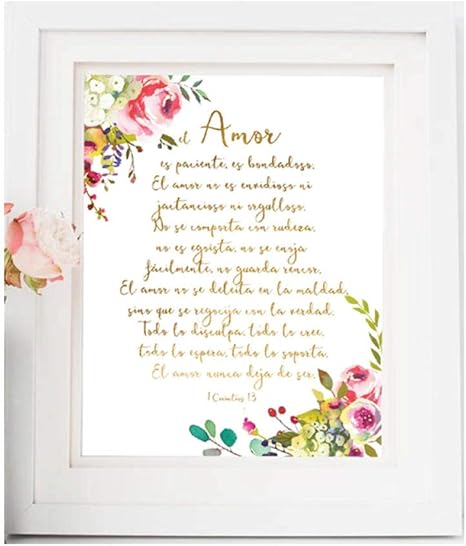 el Amor
es paciente, es bondadoso.
El amor no es envidioso ni
jactancioso ni orgulloso.
No se comporta con rudeza,
no es egoísta, no se enoja
fácilmente, no guarda rencor.
El amor no se deleita en la maldad,
sino que se regocija con la verdad.
Todo lo disculpa, todo lo cree,
todo lo espera, todo lo soporta.
El amor nunca deja de ser.
1 Corintios 13